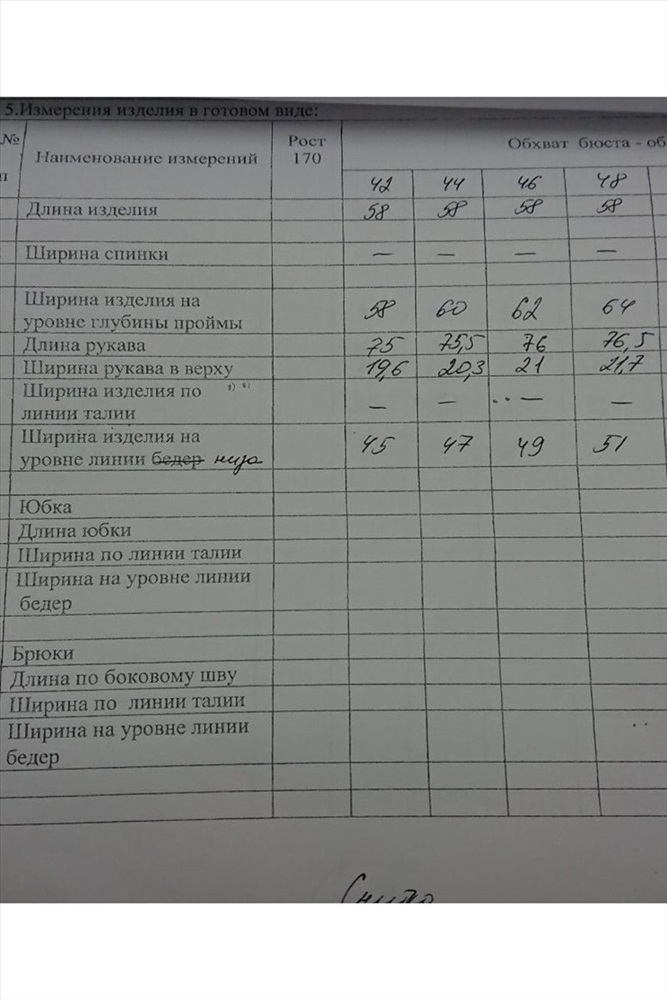 5.Измерения изделия в готовом виде:
№ Наименование измерений Рост Обхват бюста - об
п 170
42 44 46 48
Длина изделия 58 58 58 58
Ширина спинки — — — —
Ширина изделия на
уровне глубины проймы 58 60 62 64
Длина рукава 75 75,5 76 76,5
Ширина рукава в верху 19,6 20,3 21 21,7
Ширина изделия по
линии талии — — — —
Ширина изделия на
уровне линии бедер низа 45 47 49 51
Юбка
Длина юбки
Ширина по линии талии
Ширина на уровне линии
бедер
Брюки
Длина по боковому шву
Ширина по линии талии
Ширина на уровне линии
бедер